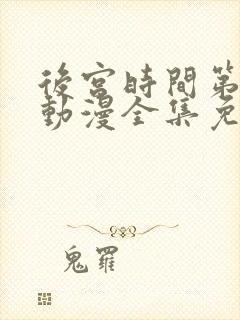 後宮時間第
動漫全集免
鬼羅